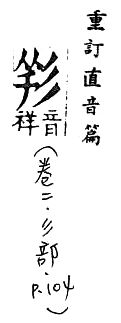 重訂直音篇
音祥
(卷二·彡部·P.104)